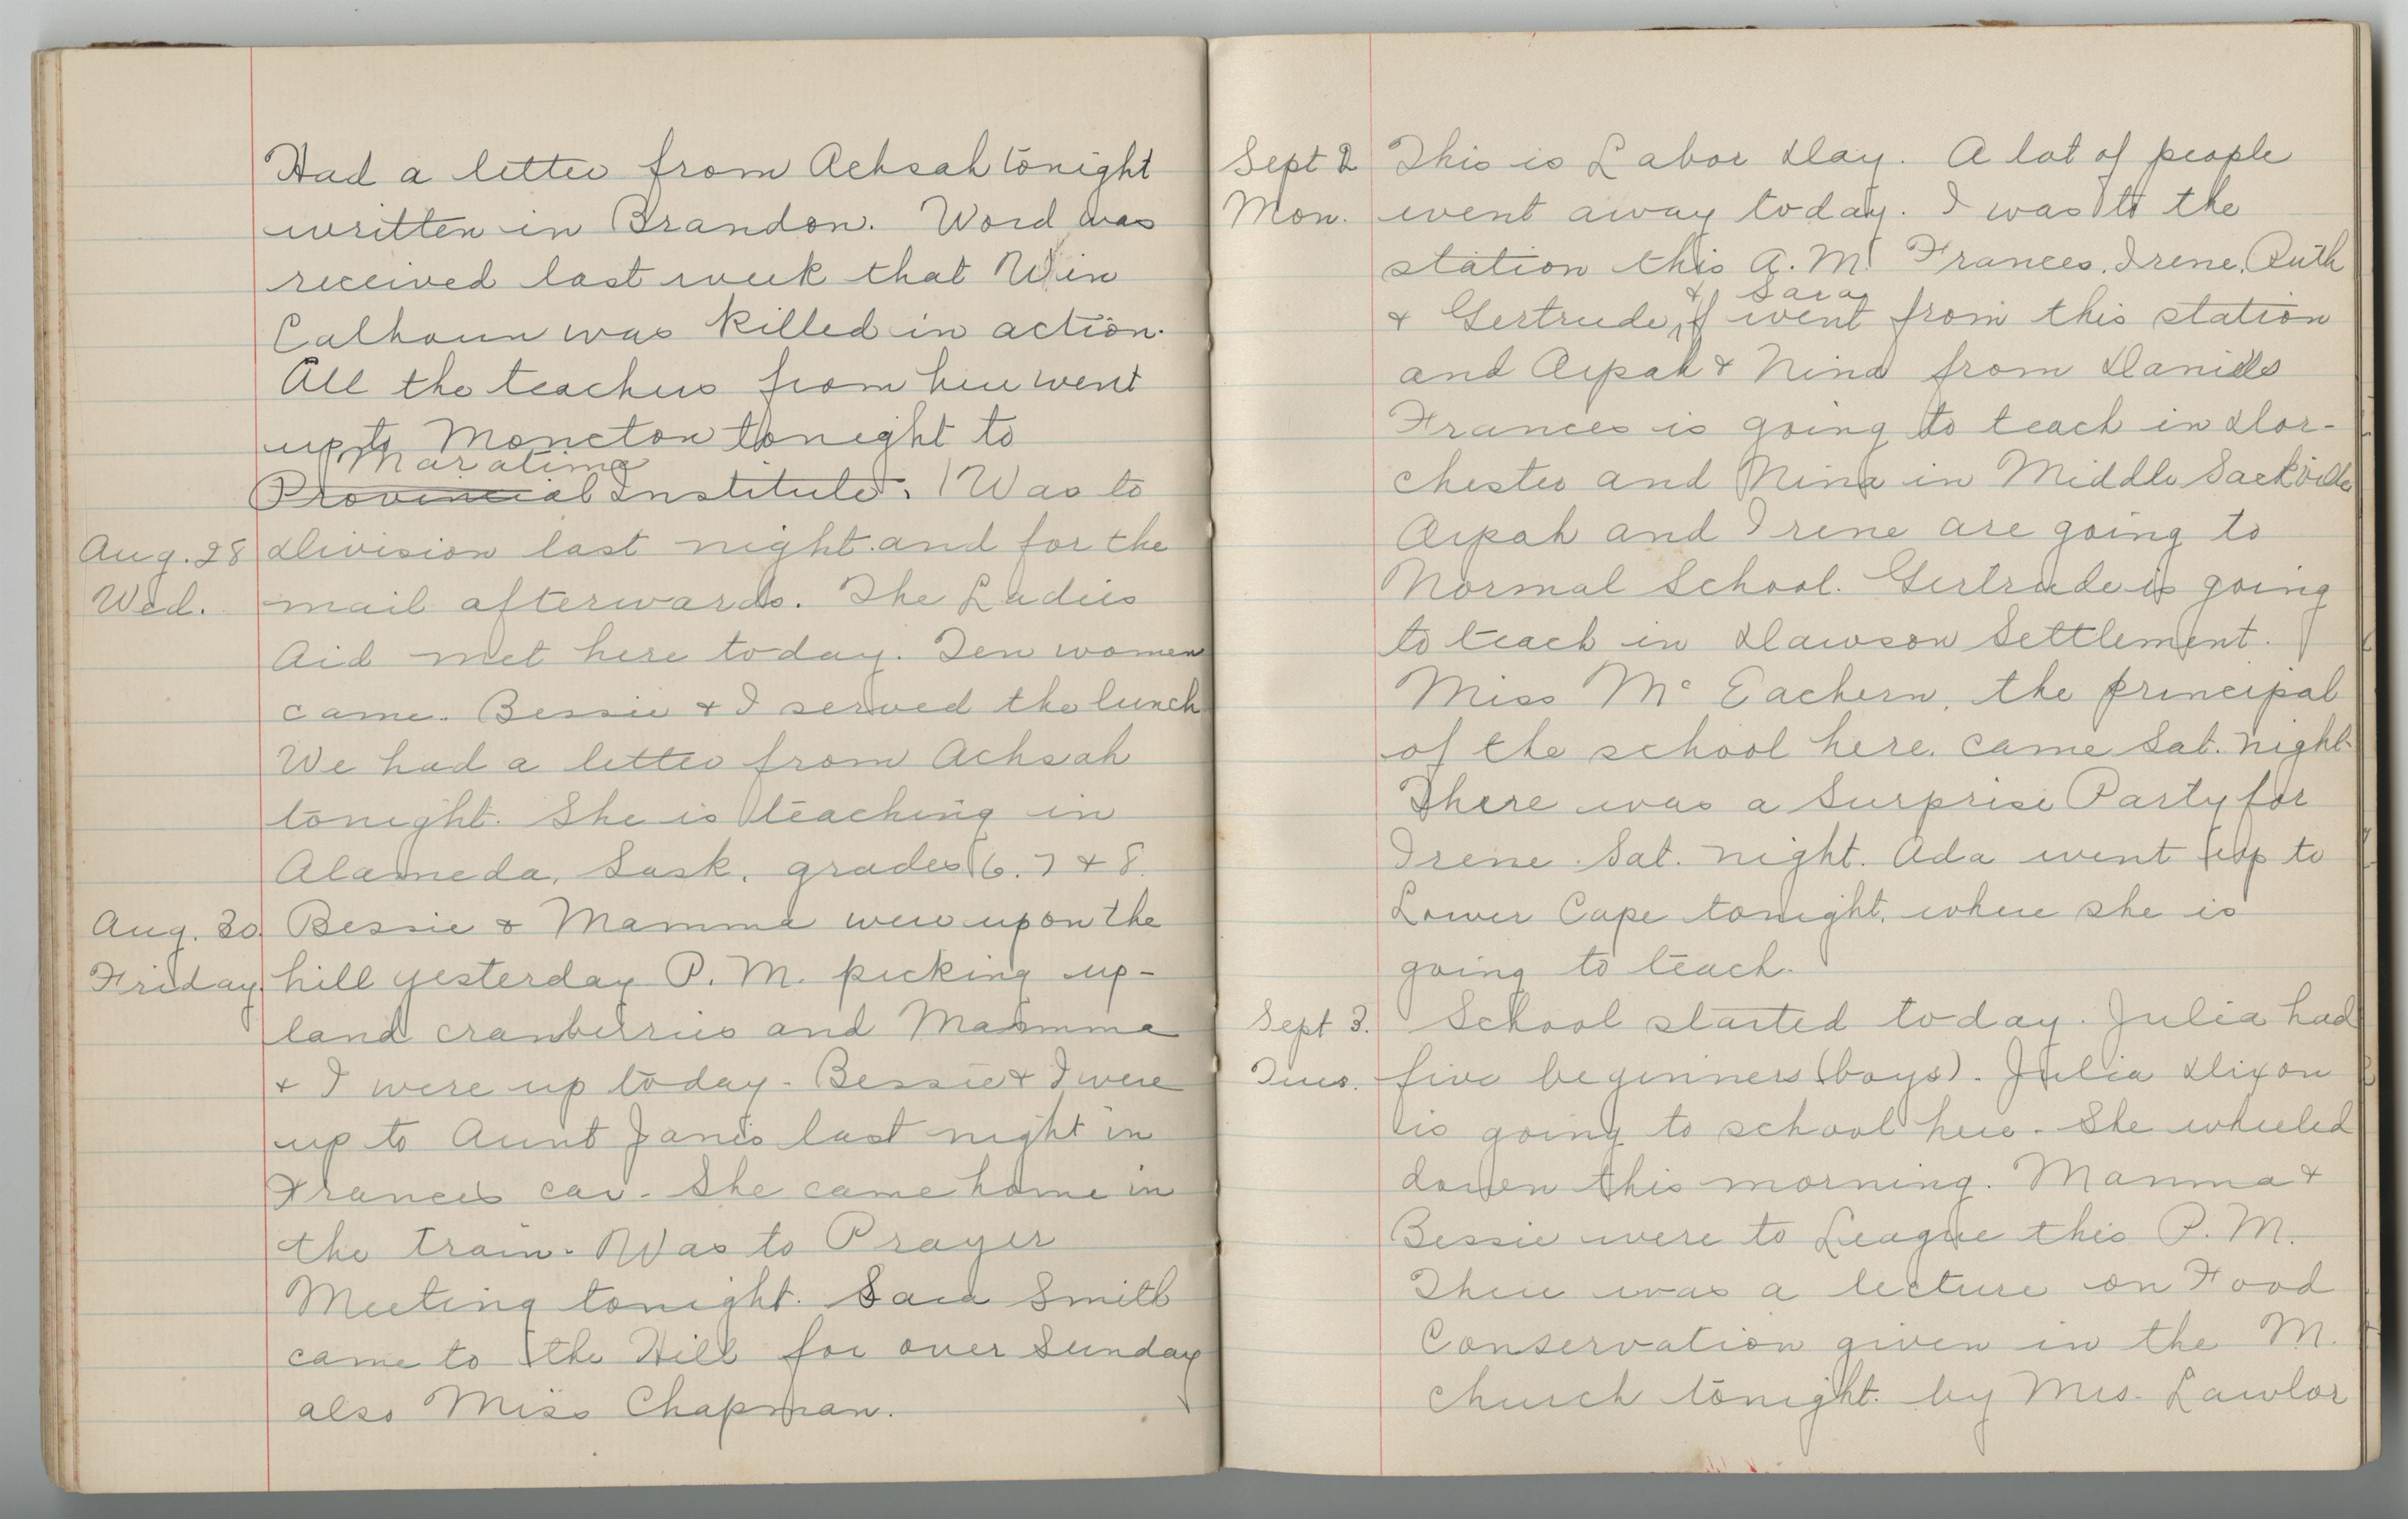 Had a letter from Achsah tonight
written in Brandon. Word was
received last week that Win
Calhoun was killed in action.
All the teachers from here went
up to Moncton tonight to
Maratime
Provincial Institute. Was to
Aug. 28 Division last night and for the
Wed. mail afterwards. The Ladies
Aid met here today. Ten women
came. Bessie & I served the lunch
We had a letter from Achsah
tonight. She is teaching in
Alameda, Sask. grades 6. 7 & 8.
Aug. 30. Bessie & Mamma were up on the
Friday. hill yesterday P. M. picking up-
land cranberries and Mamma
& I were up today. Bessie & I were
up to Aunt Janes last night in
Frances car. She came home in
the train. Was to Prayer
Meeting tonight. Sara Smith
came to the Hill for over Sunday
also Miss Chapman.
Sept 2 This is Labor Day. A lot of people
Mon. went away today. I was to the
station this A. M. Frances, Irene, Ruth
& Sara
& Gertrude, went from this station
and Arpah & Nina from Daniels
Frances is going to teach in Dor-
chester and Nina in Middle Sackville
Arpah and Irene are going to
Normal School. Gertrude is going
to teach in Dawson Settlement.
Miss McEachern, the principal
of the school here, came Sat. night.
There was a Surprise Party for
Irene Sat. night. Ada went up to
Lower Cape tonight, where she is
going to teach.
Sept 3. School started today. Julia had
Tues. five beginners (boys). Julia Dixon
is going to school here. She wheeled
down this morning. Mamma &
Bessie were to League this P. M.
There was a lecture on Food
Conservation given in the M.
church tonight by Mrs. Lawlor